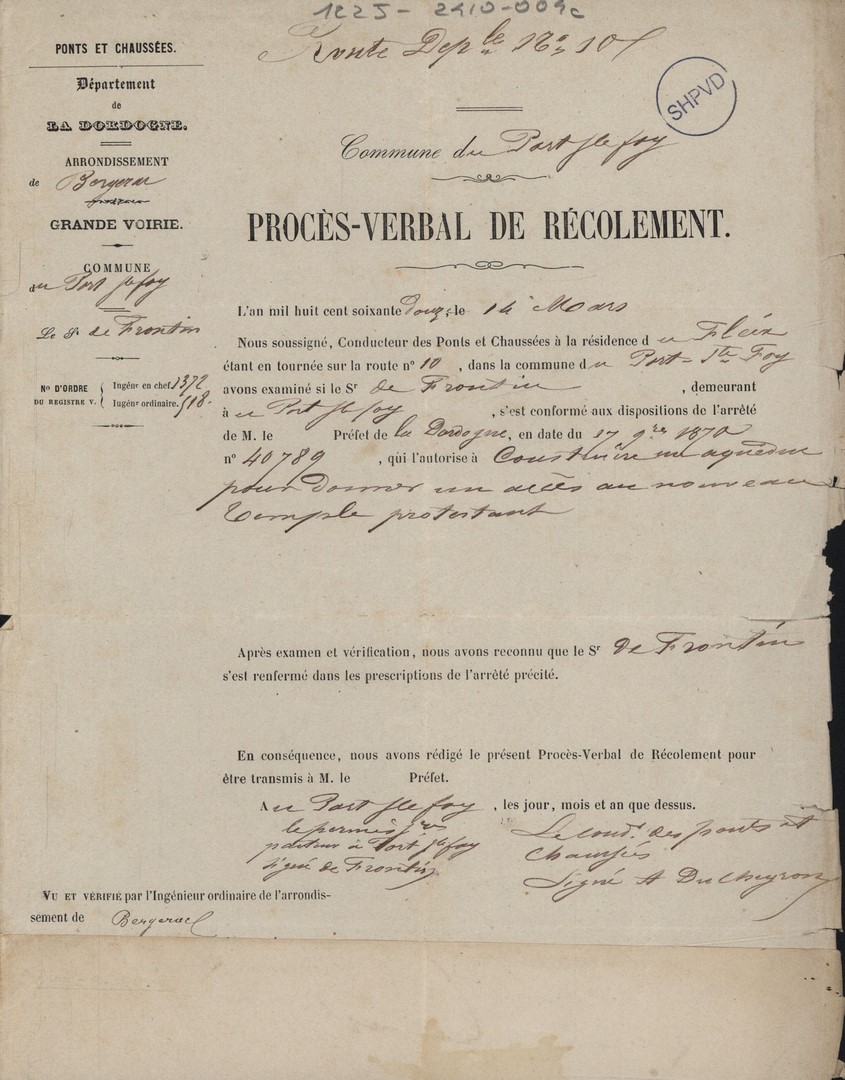 1225 - 2410-009c
Route Dep.le No 10
SHPVD
PONTS ET CHAUSSÉES.
Département
de
LA DORDOGNE.
ARRONDISSEMENT
de Bergerac
GRANDE VOIRIE.
COMMUNE
du Port Ste foy
Le Sr de Frontin
Nos D'ORDRE DU REGISTRE V.
Ingénr en chef. 1372
Ingénr ordinaire. 518.
Commune du Port Ste foy
PROCÈS-VERBAL DE RÉCOLEMENT.
L'an mil huit cent soixante Douze, le 14 Mars
Nous soussigné, Conducteur des Ponts et Chaussées à la résidence du Fleix
étant en tournée sur la route no 10, dans la commune du Port-Ste Foy
avons examiné si le Sr de Frontin, demeurant
à au Port Ste foy, s'est conformé aux dispositions de l'arrêté
de M. le Préfet de la Dordogne, en date du 17 9bre 1870
no 40789, qui l'autorise à Construire un aqueduc
pour donner un accès au nouveau
Temple protestant
Après examen et vérification, nous avons reconnu que le Sr de Frontin
s'est renfermé dans les prescriptions de l'arrêté précité.
En conséquence, nous avons rédigé le présent Procès-Verbal de Récolement pour
être transmis à M. le Préfet.
Au Port Ste foy, les jour, mois et an que dessus.
le permis
pasteur à Port Ste foy
signé de Frontin
Le cond. des ponts et
Chaussées
Signé A Ducheyron
VU ET VÉRIFIÉ par l'Ingénieur ordinaire de l'arrondis-
sement de Bergerac